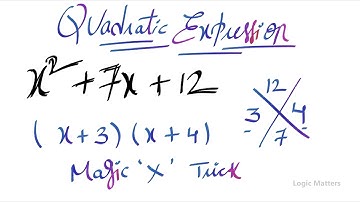 Quadratic Expression
x² + 7x + 12
12
3 4
7
(x+3)(x+4)
Magic 'X' Trick
Logic Matters